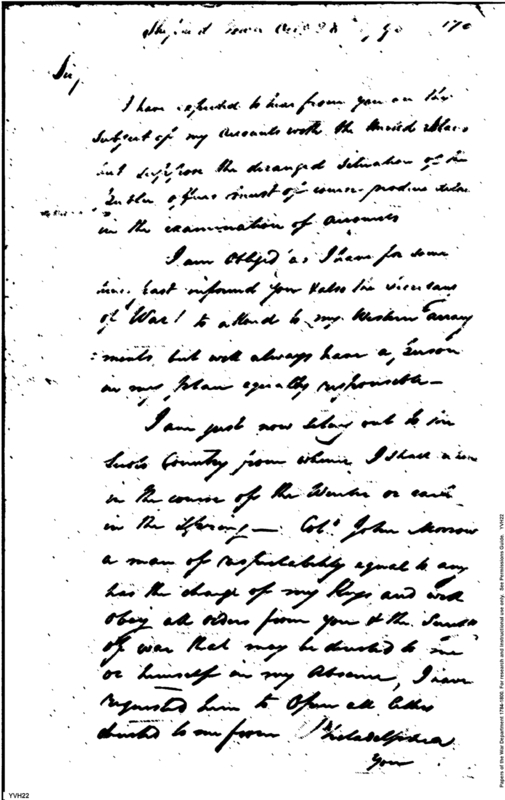 Sir,
I have expected to hear from you on the
Subject of my Accounts with the United States
but suppose the deranged situation of the
Public offices must of course produce delay
in the examination of Accounts
I am Obliged as I have for some
time past informed you & also the
of War to attend to my Western arrang
ments, but will always have a Person
in my place equally responsible —
I am just now setting out to the
Country from whence I shall
in the course of the Winter or early
in the Spring — Col. John Morrow
a man of respectability equal to any
has the charge of my Keys and will
obey all orders from you & the
of War that may be directed to me
or himself in my Absence, I have
requested him to Open all letters
directed to me from Philadelphia
You
YVH22
Papers of the War Department 1784-1800. For research and instructional use only. See Permissions Guide. YVH22